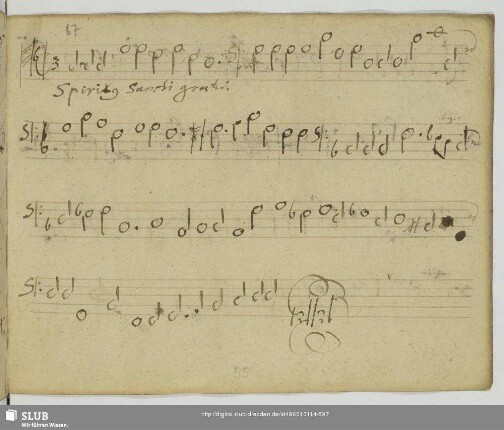 67
3
Spiritus Sancti gratia.
55
SLUB
Wir führen Wissen.
http://digital.slub-dresden.de/id496616114-697